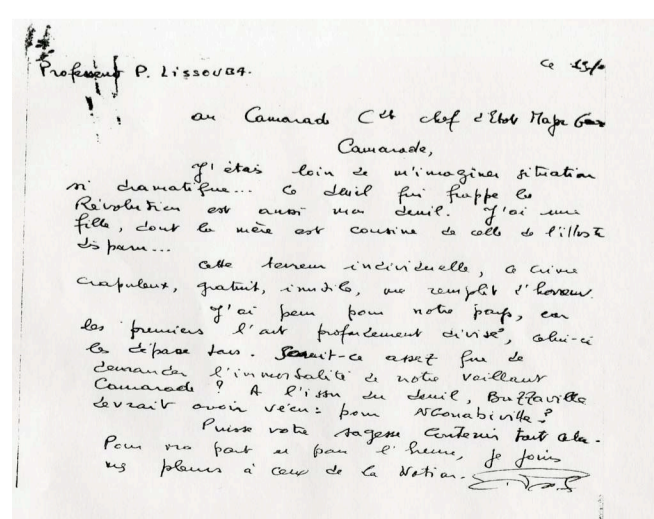 Professeur P. LISSOUBA.
Ce
au Camarade Cdt chef d'Etat Major
Camarade,
J'étais loin de m'imaginer situation
si dramatique... Ce deuil qui frappe la
Révolution est aussi mon deuil. J'ai une
fille, dont la mère est cousine de celle de l'illustre
disparu...
Cette terreur individuelle, ce crime
crapuleux, gratuit, inutile, me remplit d'horreur.
J'ai peur pour notre pays, car
les premiers l'ont profondément divisé, celui-ci
les dépasse tous. Serait-ce assez que de
demander l'immortalité de notre vaillant
Camarade ? A l'issu du deuil, Brazzaville
devrait avoir vécu: pour NGouabiville ?
Puisse votre sagesse contenir tout cela.
Pour ma part et pour l'heure, je joins
mes pleurs à ceux de la Nation.